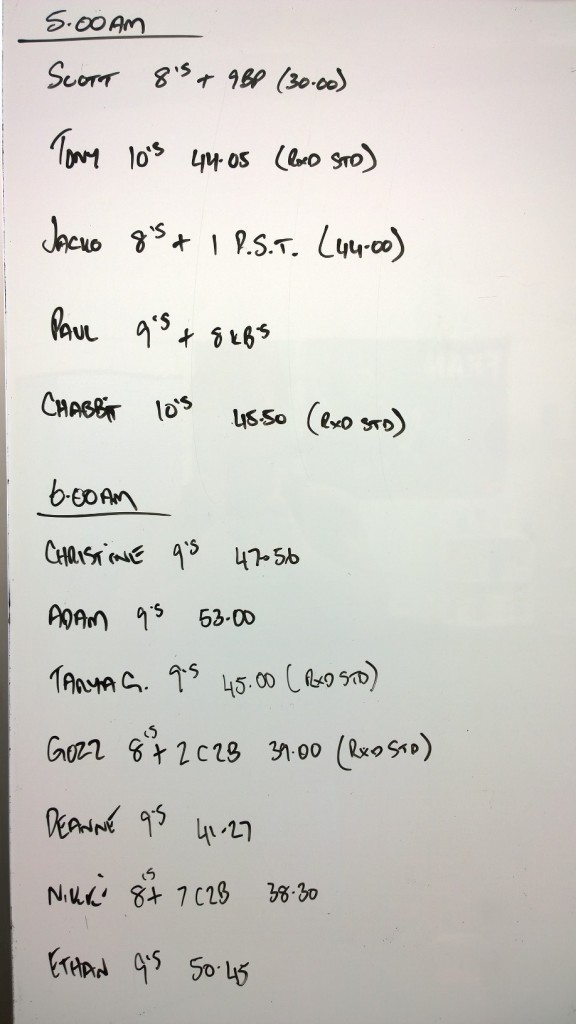 5.00AM
SCOTT 8'S + 9BP (30.00)
TONY 10'S 44.05 (RXD STD)
JACKO 8'S + 1 P.S.T. (44.00)
PAUL 9'S + 8 KB'S
CHABBIT 10'S 45.50 (RXD STD)
6.00AM
CHRISTINE 9'S 47.56
ADAM 9'S 53.00
TANYA G. 9'S 45.00 (RXD STD)
GOZZ 8'S + 2 C2B 39.00 (RXD STD)
DEANNE 9'S 41.27
NIKKI 8'S + 7 C2B 38.30
ETHAN 9'S 50.45